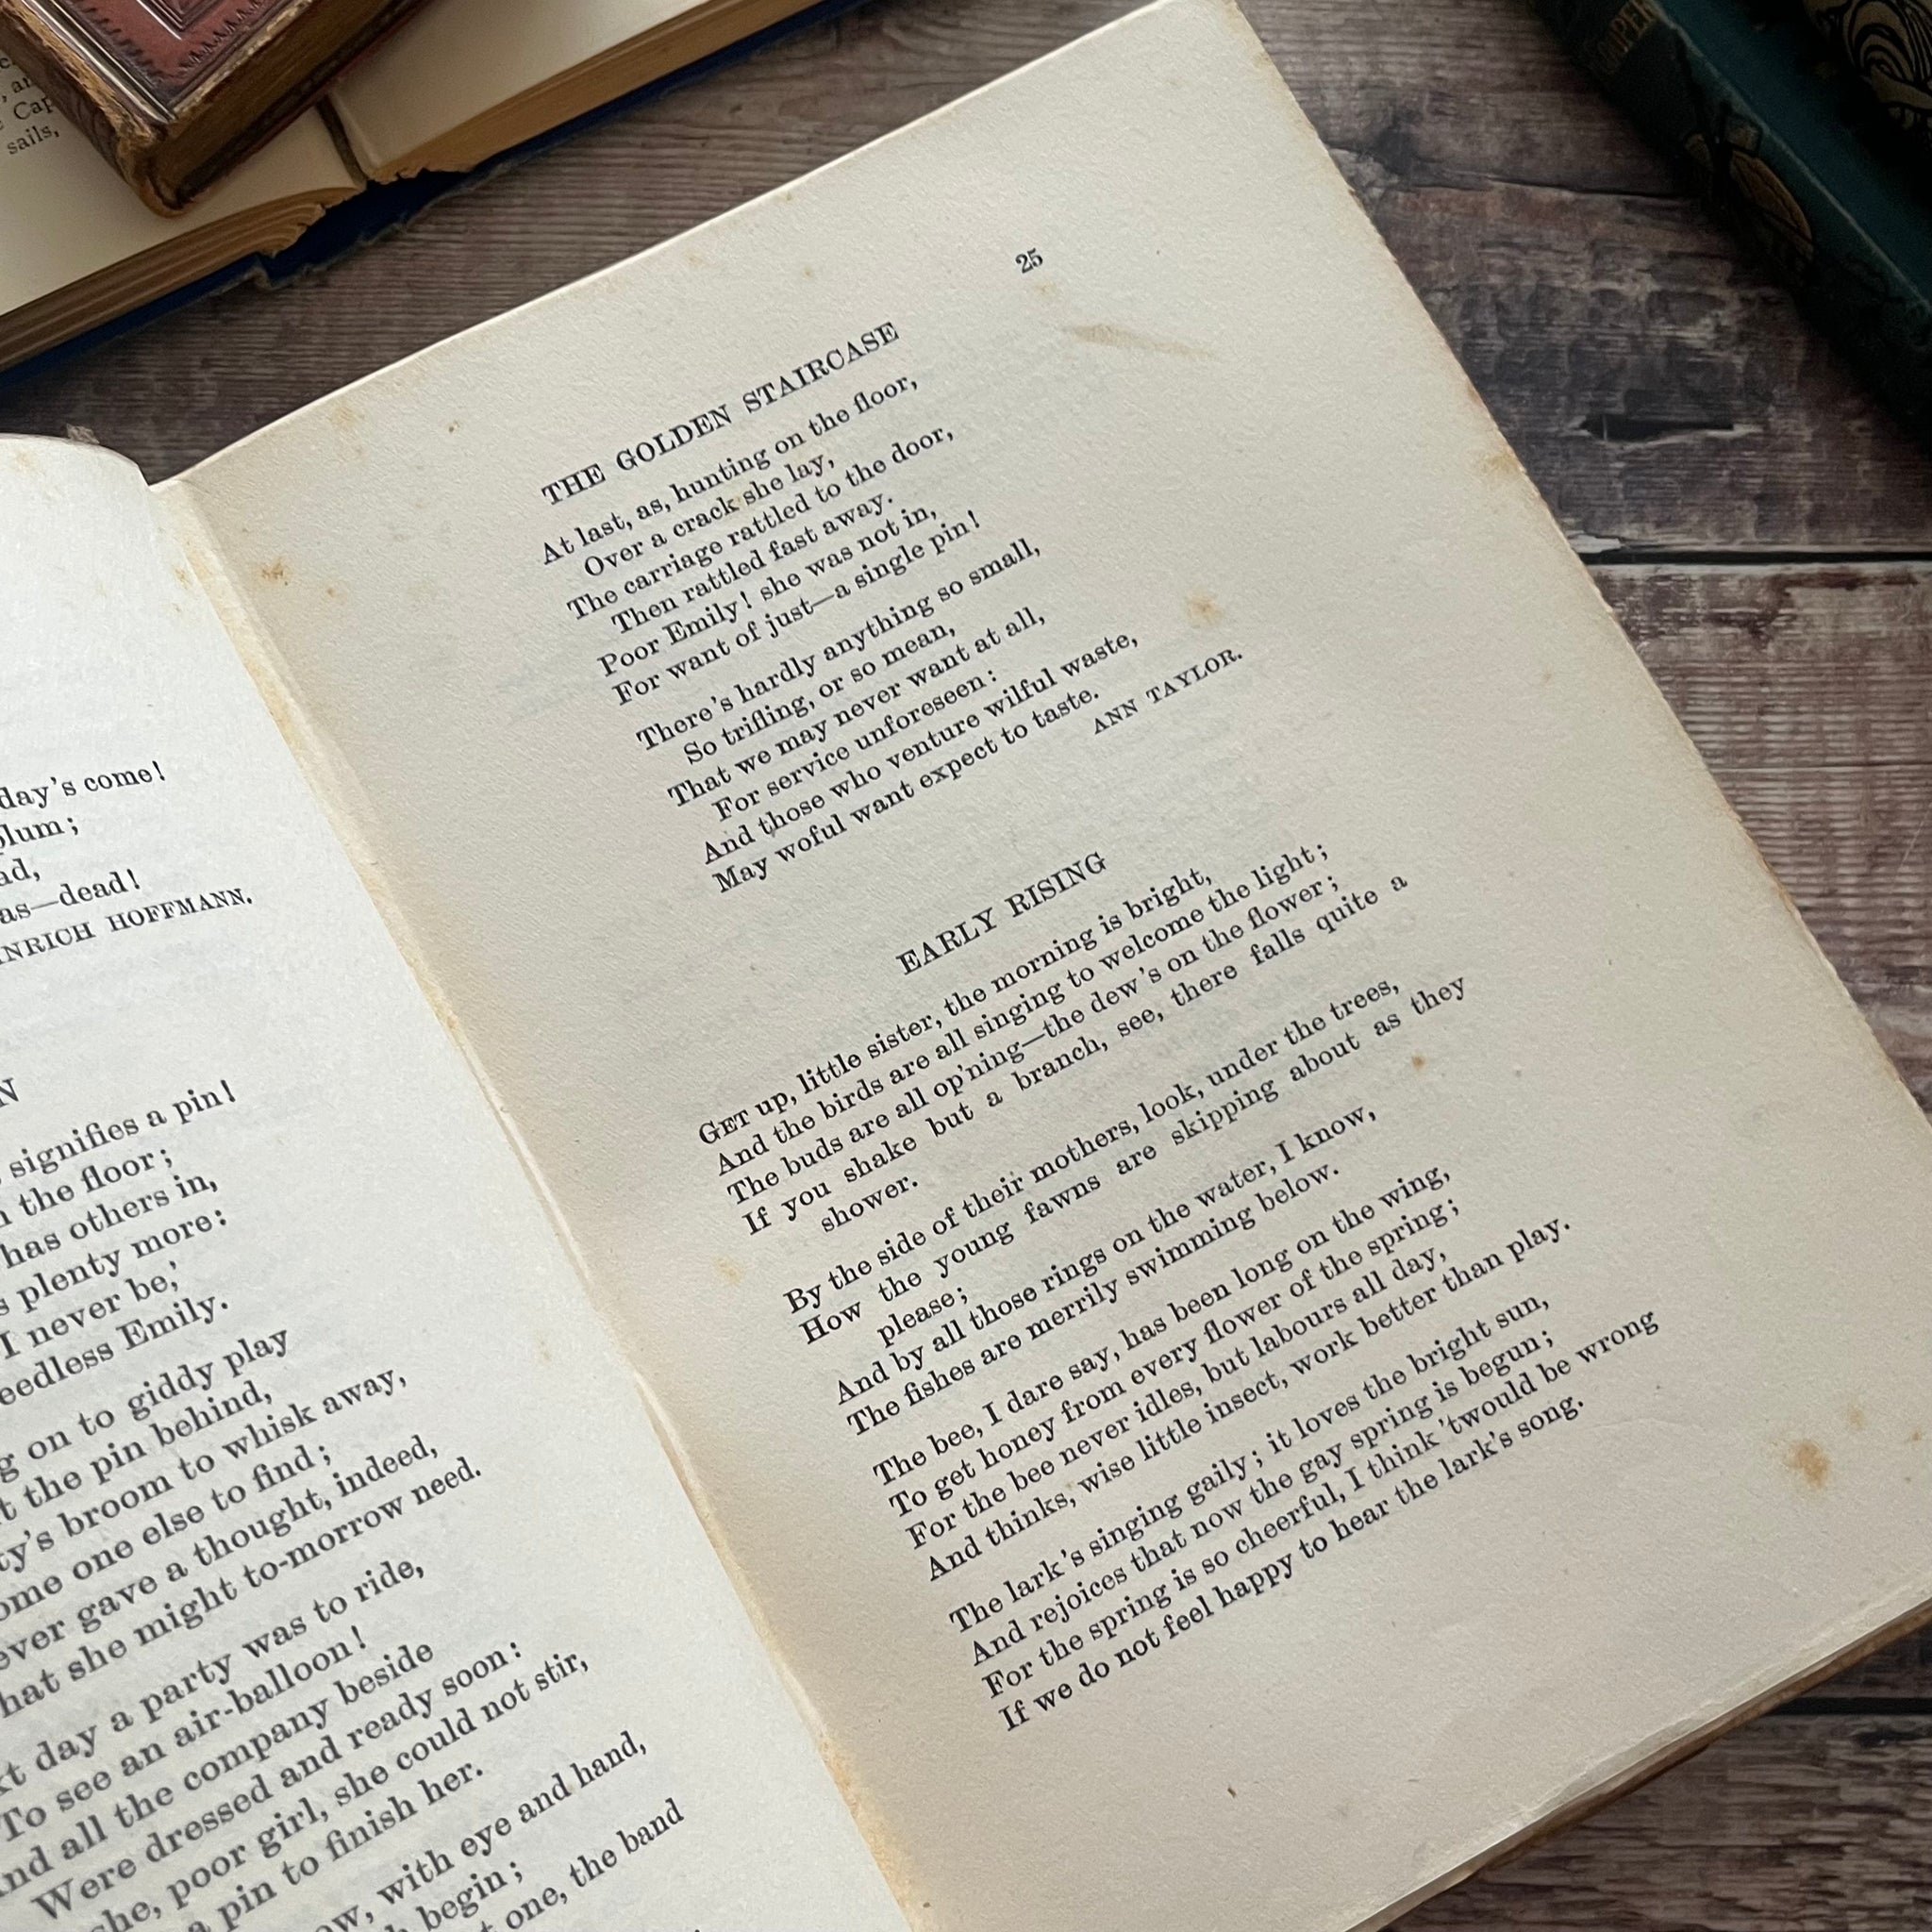 sails,
day's come!
plum;
as—dead!
HOFFMANN.
signifies a pin!
the floor;
has others in,
plenty more:
I never be,'
Emily.
on to giddy play
the pin behind,
broom to whisk away,
one else to find;
gave a thought, indeed,
she might to-morrow need.
day a party was to ride,
To see an air-balloon!
all the company beside
Were dressed and ready soon:
poor girl, she could not stir,
pin to finish her.
with eye and hand,
begin;
one, the band
25
THE GOLDEN STAIRCASE
At last, as, hunting on the floor,
Over a crack she lay,
The carriage rattled to the door,
Then rattled fast away.
Poor Emily! she was not in,
For want of just—a single pin!
There's hardly anything so small,
So trifling, or so mean,
That we may never want at all,
For service unforeseen:
And those who venture wilful waste,
May woful want expect to taste.
ANN TAYLOR.
EARLY RISING
GET up, little sister, the morning is bright,
And the birds are all singing to welcome the light;
The buds are all op'ning—the dew's on the flower;
If you shake but a branch, see, there falls quite a
shower.
By the side of their mothers, look, under the trees,
How the young fawns are skipping about as they
please;
And by all those rings on the water, I know,
The fishes are merrily swimming below.
The bee, I dare say, has been long on the wing,
To get honey from every flower of the spring;
For the bee never idles, but labours all day,
And thinks, wise little insect, work better than play.
The lark's singing gaily; it loves the bright sun,
And rejoices that now the gay spring is begun;
For the spring is so cheerful, I think 'twould be wrong
If we do not feel happy to hear the lark's song.